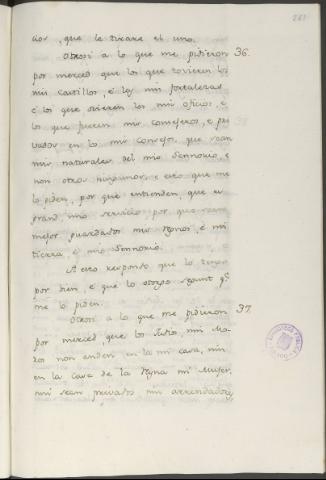 que le tirare el uno.
Otrosi a lo que me pidieron 36.
por merced que los que tovieren los
mis Castillos è las mis fortalezas
è los que ovieren los mis oficios, è
los que fueren mis consejeros, è pri
vados en lo mio consejo, que sean
mis naturales del mio Sennorio, è
non otros ningunos, è esto que me
lo piden, por que entienden, que es
grand mio servicio por que sean
mejor guardados mis Regnos, è mi
tierra, è mio Sennorio.
A esto respondo que lo tengo
por bien, è que lo otorgo segunt q.e
me lo piden.
Otrosi a lo que me pidieron 37.
por merced que los Judios, nin Mo-
ros non anden en la mi casa, nin
en la Casa de la Regna mi Muger,
nin sean privados nin arrendadores,
BIBLIOTECA PUBLICA